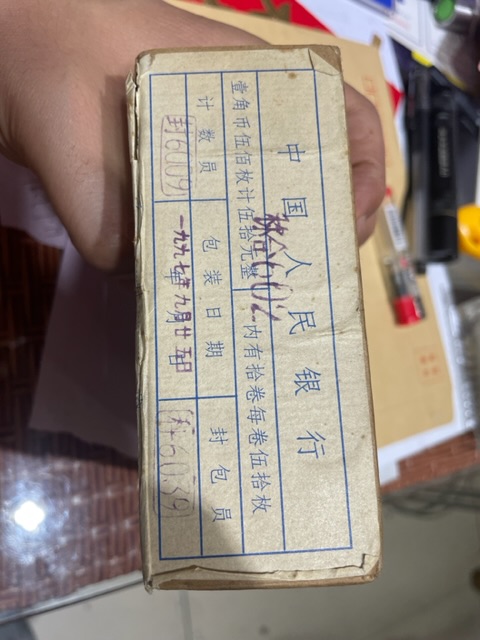 中国人民银行
壹角币伍佰枚计伍拾元整 内有拾卷每卷伍拾枚
计数员 包装日期 封包员
封6009 一九九七年九月廿五日 封6039